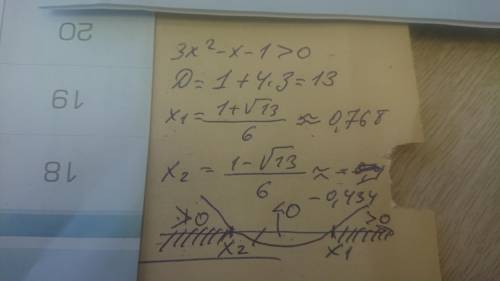 20
19
18
3x²-x-1>0
D=1+4·3=13
x₁=(1+√13)/6≈0,768
x₂=(1-√13)/6≈
-0,434
>0 <0 >0
x₂ x₁